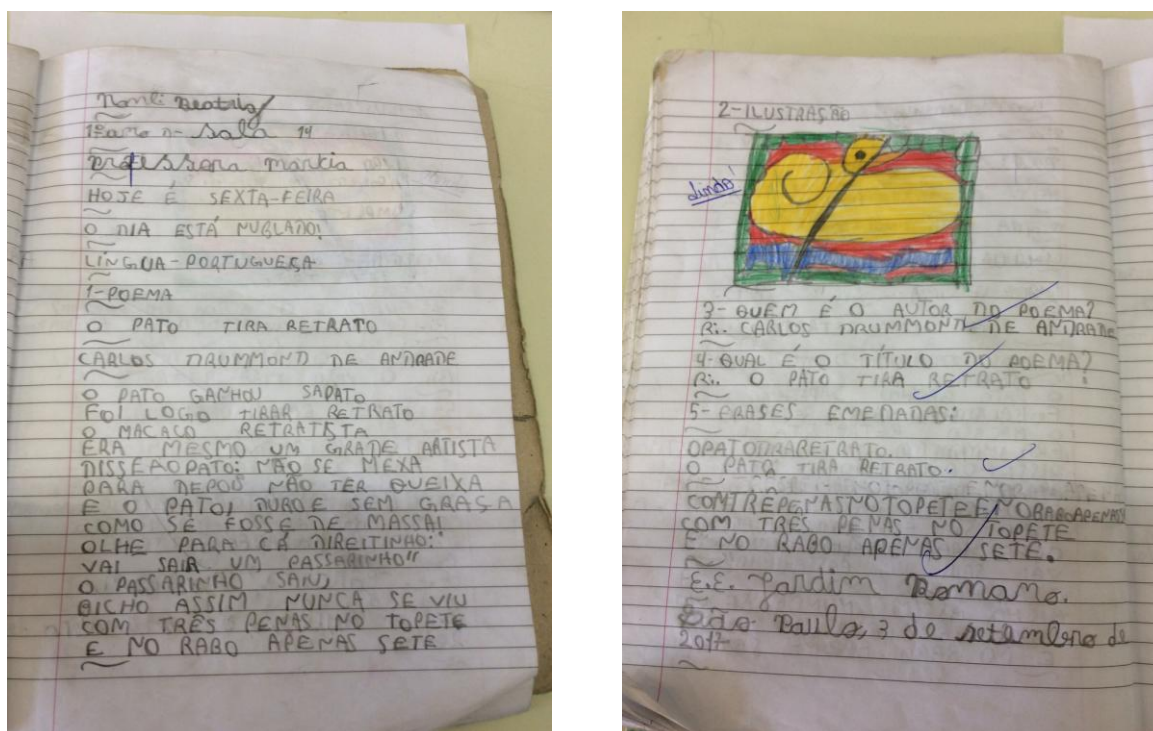 Beatriz
1º ano D - Sala 14
professora markia
HOJE É SEXTA-FEIRA
O DIA ESTÁ NUBLADO!
LÍNGUA-PORTUGUESA
1-POEMA
O PATO TIRA RETRATO
CARLOS DRUMMOND DE ANDRADE
O PATO GANHOU SAPATO
FOI LOGO TIRAR RETRATO
O MACACO RETRATISTA
ERA MESMO UM GRADE ARTISTA
DISSEAOPATO: NÃO SE MEXA
PARA DEPOU NÃO TER QUEIXA
E O PATO, DURO E SEM GRAÇA
COMO SE FOSSE DE MASSA!
OLHE PARA CÁ DIREITINHO:
VAI SAIR UM PASSARINHO"
O PASSARINHO
BICHO ASSIM NUNCA SE VIU
COM TRÊS PENAS NO TOPETE
E NO RABO APENAS SETE
2-ILUSTRAÇÃO
Lindo!
3- QUEM É O AUTOR DO POEMA?
R:. CARLOS DRUMMOND DE ANDRADE
4- QUAL É O TÍTULO DO POEMA?
R:. O PATO TIRA RETRATO
5- FRASES EMENDADAS:
OPATOTIRARETRATO.
O PATO TIRA RETRATO.
COMTRÊPENASNOTOPETEENORABOAPENAS
COM TRÊS PENAS NO TOPETE
E NO RABO APENAS SETE.
E.E. Jardim Romano.
São Paulo, 3 de setembro de
2017